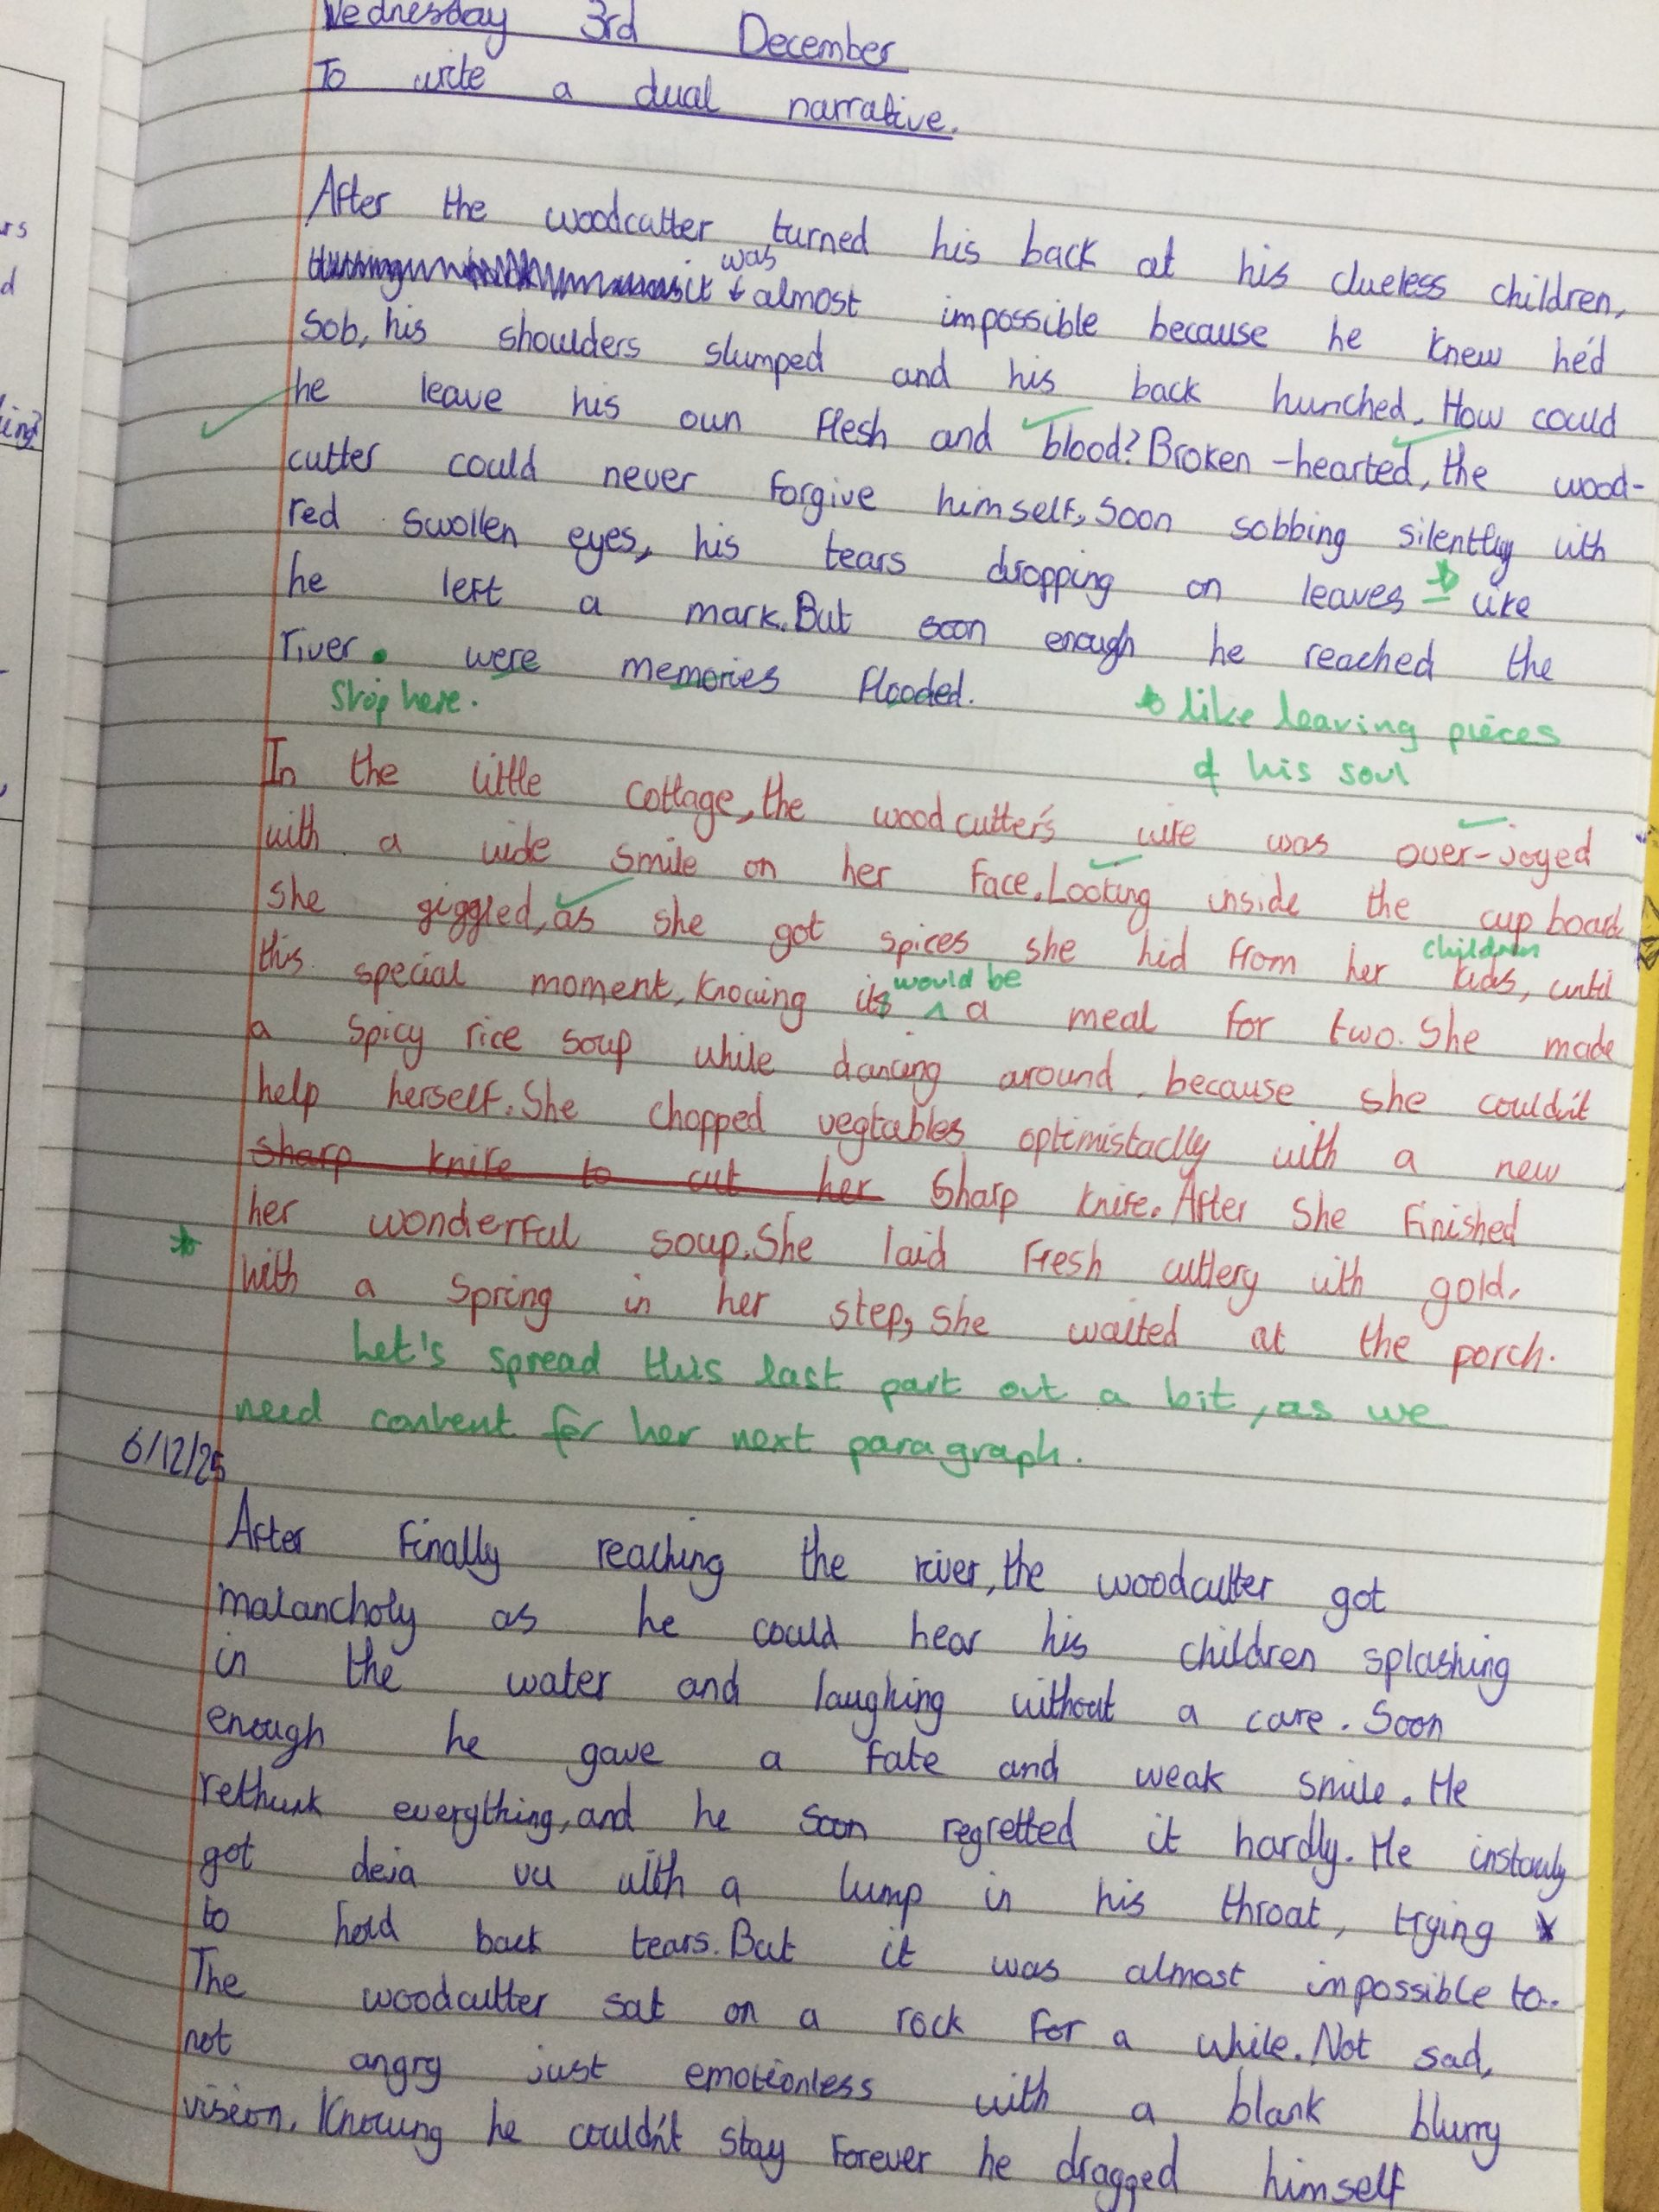 Wednesday 3rd December
To write a dual narrative.
After the woodcutter turned his back at his clueless children,
it was almost impossible because he knew he'd
sob, his shoulders slumped and his back hunched. How could
he leave his own flesh and blood? Broken-hearted, the wood-
cutter could never forgive himself, soon sobbing silently with
red swollen eyes, his tears dropping on leaves like
he left a mark. But soon enough he reached the
river. were memories flooded.
Stop here.
like leaving pieces
of his soul
In the little cottage, the woodcutter's wife was over-joyed
with a wide smile on her face. Looking inside the cup board
she giggled, as she got spices she hid from her kids, until
children
this special moment, knowing its would be a meal for two. She made
a spicy rice soup while dancing around, because she couldn't
help herself. She chopped vegtables optimistaclly with a new
sharp knife to cut her sharp knife. After she finished
her wonderful soup. She laid fresh cutlery with gold.
With a spring in her step, she waited at the porch.
Let's spread this last part out a bit, as we
need content for her next paragraph.
6/12/25
After finally reaching the river, the woodcutter got
malancholy as he could hear his children splashing
in the water and laughing without a care. Soon
enough he gave a fake and weak smile. He
rethunk everything, and he soon regretted it hardly. He instantly
got deja vu with a lump in his throat, trying
to hold back tears. But it was almost impossible to..
The woodcutter sat on a rock for a while. Not sad,
not angry just emotionless with a blank blurry
vision. Knowing he couldn't stay forever he dragged himself